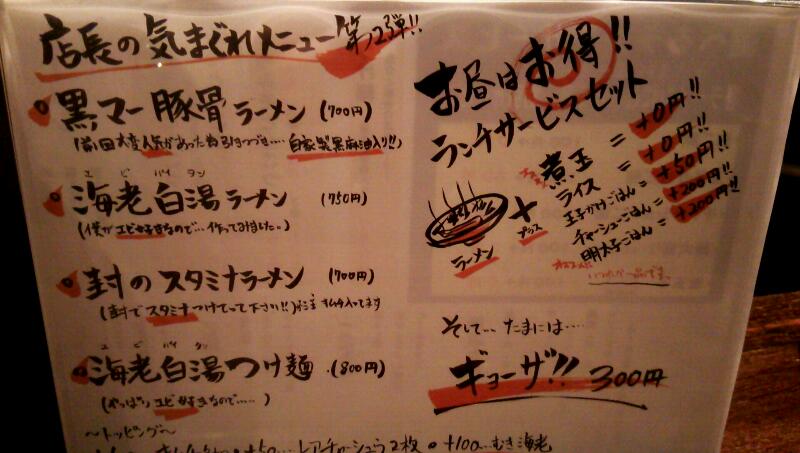 店長の気まぐれメニュー第2弾!!
黒マー豚骨ラーメン (700円)
(前回大変人気があった為引きつづき…. 自家製黒麻油入り!!)
エビパイタン
海老白湯ラーメン (750円)
(僕がエビ好きなので… 作ってみました。)
封のスタミナラーメン (700円)
(封でスタミナつけてって下さい!!) ※注 キムチ入ってます
エビパイタン
海老白湯つけ麺 (800円)
(やっぱりエビ好きなので……)
〜トッピング〜
+50…レアチャーシュー2枚 ・ +100…むき海老
お昼はお得!!
ランチサービスセット
ラーメン
+
プラス
煮玉 = +0円!!
ライス = +0円!!
玉子かけごはん = +50円!!
チャーシューごはん = +200円!!
明太子ごはん = +200円!!
いづれか一品です。
そして… たまには….
ギョーザ!! 300円